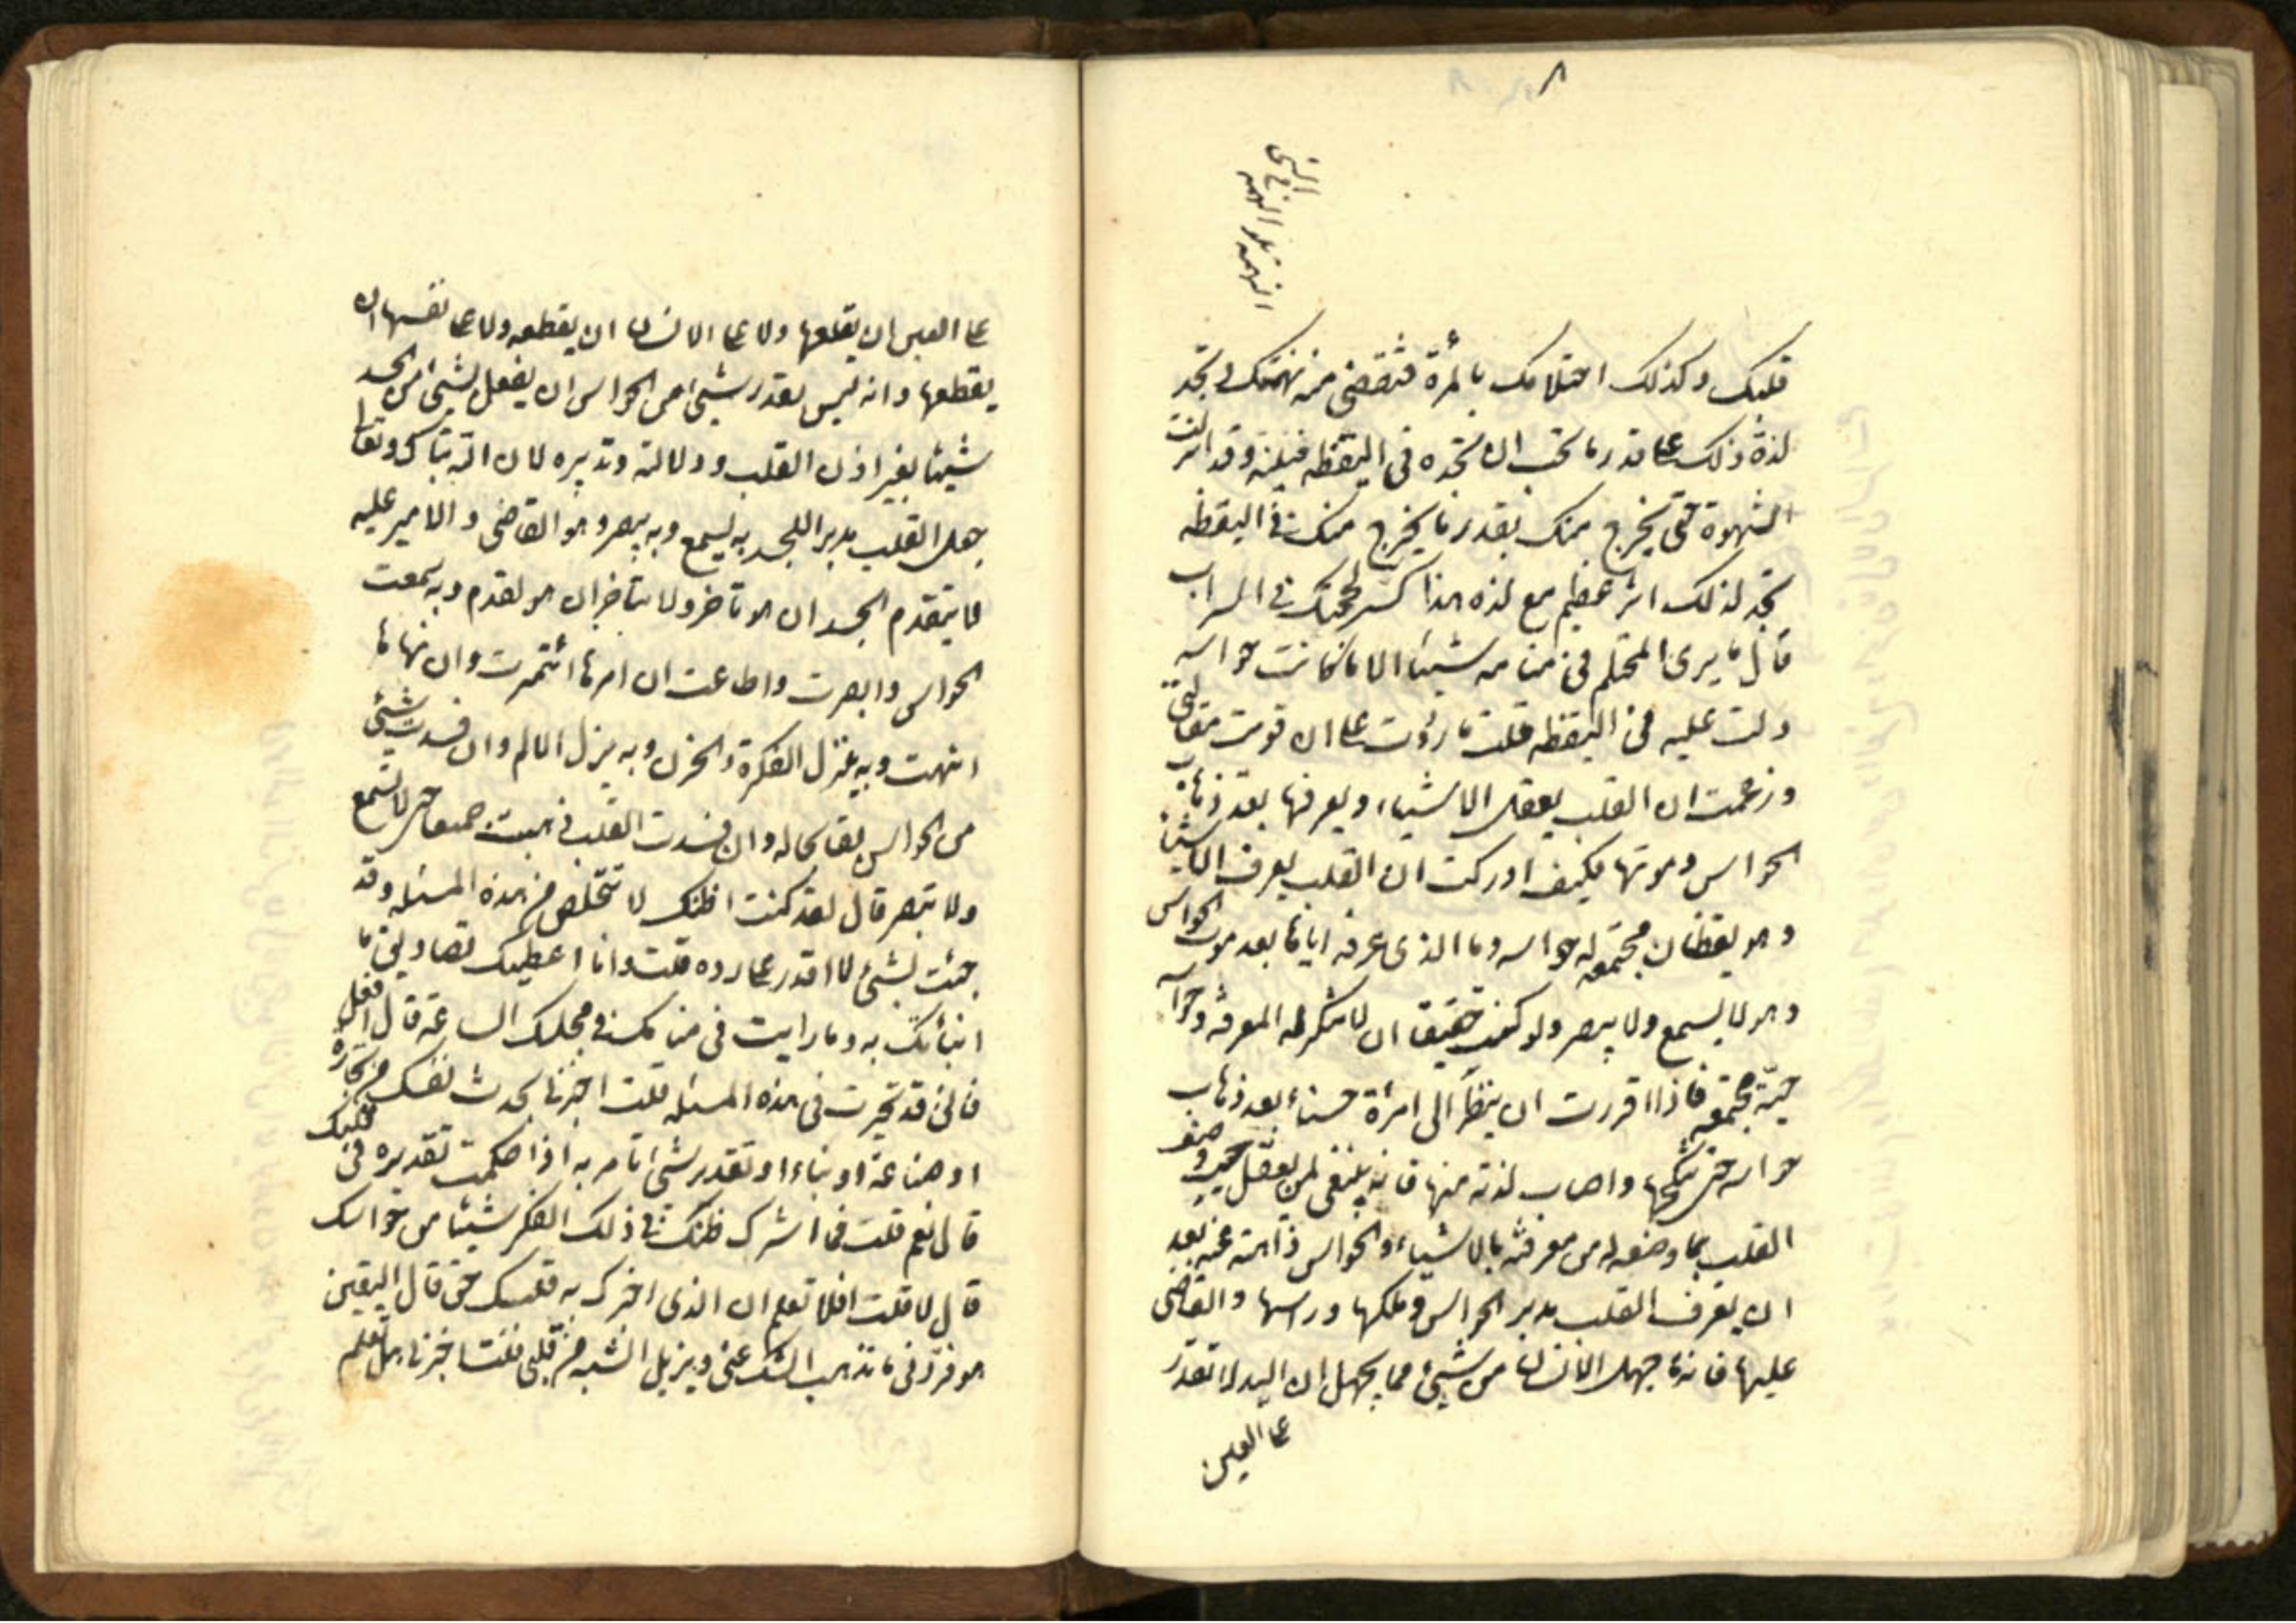 ٨
النهمة بلوغ الهمة
في الشي
قلبك وكذلك احتلامك بالمرأة فتقضى منه نهمتك وتجد
لذة ذلك على قدر ما تحب ان تجده في اليقظه فيلذ وقد انزلت
الشهوة حتى يخرج منك بقدر ما يخرج منك في اليقظه
تجد لذلك اثر عظيم مع لذه هذا كسر لحجتك في السراب
قال ما يرى المحتلم في منامه شيئا الا ما كانت حواسه
دلت عليه في اليقظه قلت ما زدت على ان قويت مقالتي
وزعمت ان القلب يعقل الاشياء ويعرفها بعد ذهاب
الحواس وموتها فكيف ادركت ان القلب يعرف الاشياء
وهو يقظان مجتمعه له حواسه وما الذي عرفه اياها بعد موت الحواس
وهو لا يسمع ولا يبصر ولو كنت حقيقا ان لا تنكر له المعرفة وحواسه
حيّة مجتمعه فاذا اقررت ان ينظر الى امرأة حسناء بعد ذهاب
حواسه حتى نكحها واصاب لذته منها فانه ينبغي لمن يعقل حين وصف
القلب بما وصفه له من معرفته بالاشياء والحواس ذاهبة عنه بعد
ان يعرف القلب مدبر الحواس وملكها وراسها والقاضى
عليها فانه ما جهل الانسان من شيئ مما يجهل ان اليد لا تقدر
على العين
على العين ان تقلعها ولا على اللسان ان يقطعه ولا على نفسها ان
يقطعها وانه ليس يقدر شيئ من الحواس ان يفعل بشيئ من الجسد
شيئا بغير اذن القلب ودلالته وتدبيره لان الله تبارك وتعالى
جعل القلب مدبرا للجسد به يسمع وبه يبصر وهو القاضى والامير عليه
لا يتقدم الجسد ان هو تاخر ولا يتاخر ان هو تقدم وبه سمعت
الحواس وابصرت واطاعت ان امرها ائتمرت وان نهاها
انتهت وبه ينزل الفكرة والحزن وبه ينزل الالم وان فسدت شيئ
من الحواس بقا بحاله وان فسدت القلب ذهبت جميعا حتى لا يسمع
ولا تبصر قال لقد كنت اظنك لا تتخلص من هذه المسئله وقد
جئت بشيئ لا اقدر على رده قلت وانا اعطيك تصاديق ما
انبأتك به وما رايت في منامك في مجلسك الساعة قال افعل
فاني قد تحيرت في هذه المسئله قلت اخبرنا بحدث نفسك من تجارة
او صناعة او بناء او تقدير شيئ تامر به اذا حكمت تقديره في قلبك
قال نعم قلت فما اشرك ظنك في ذلك الفكر شيئا من حواسك
قال لا قلت افلا تعلم ان الذى اخبرك به قلبك حق قال اليقين
هو فزدني ما تذهب الشك عني ويزيل الشبه من قلبي قلت اخبرني هل تعلم